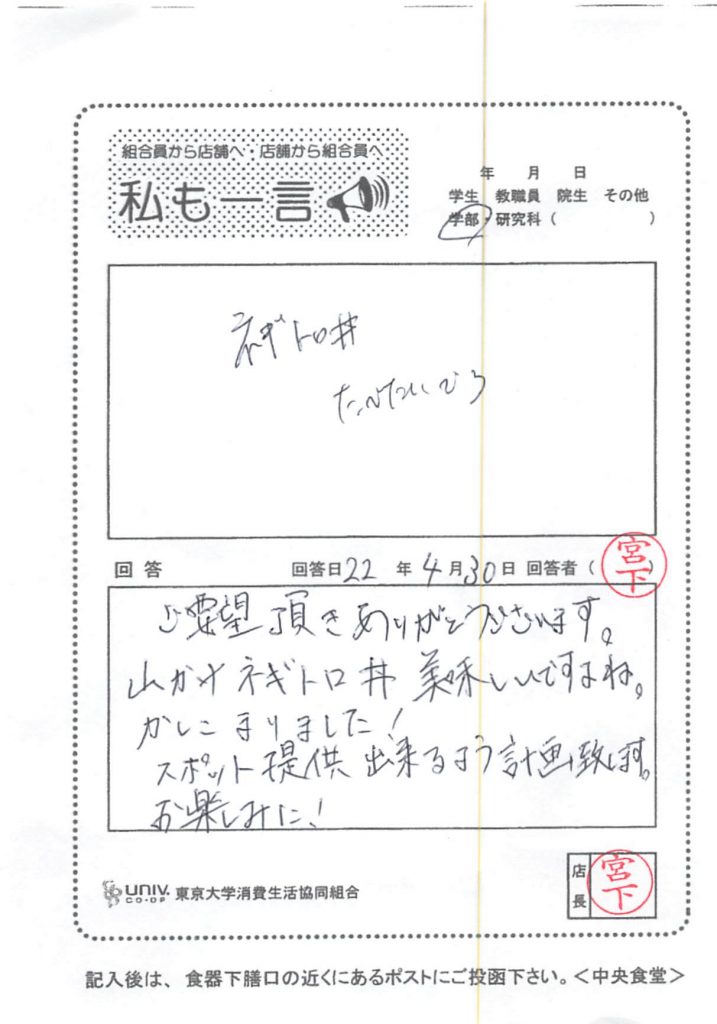 組合員から店舗へ・店舗から組合員へ
私も一言
年 月 日
学生 教職員 院生 その他
学部・研究科（ ）
ネギトロ丼
たべたいです
回答 回答日22年4月30日 回答者（宮下）
ご要望頂きありがとうございます。
山かけネギトロ丼美味しいですよね。
かしこまりました！
スポット提供出来るよう計画致します。
お楽しみに！
UNIV. CO-OP 東京大学消費生活協同組合
店長 宮下
記入後は、食器下膳口の近くにあるポストにご投函下さい。＜中央食堂＞